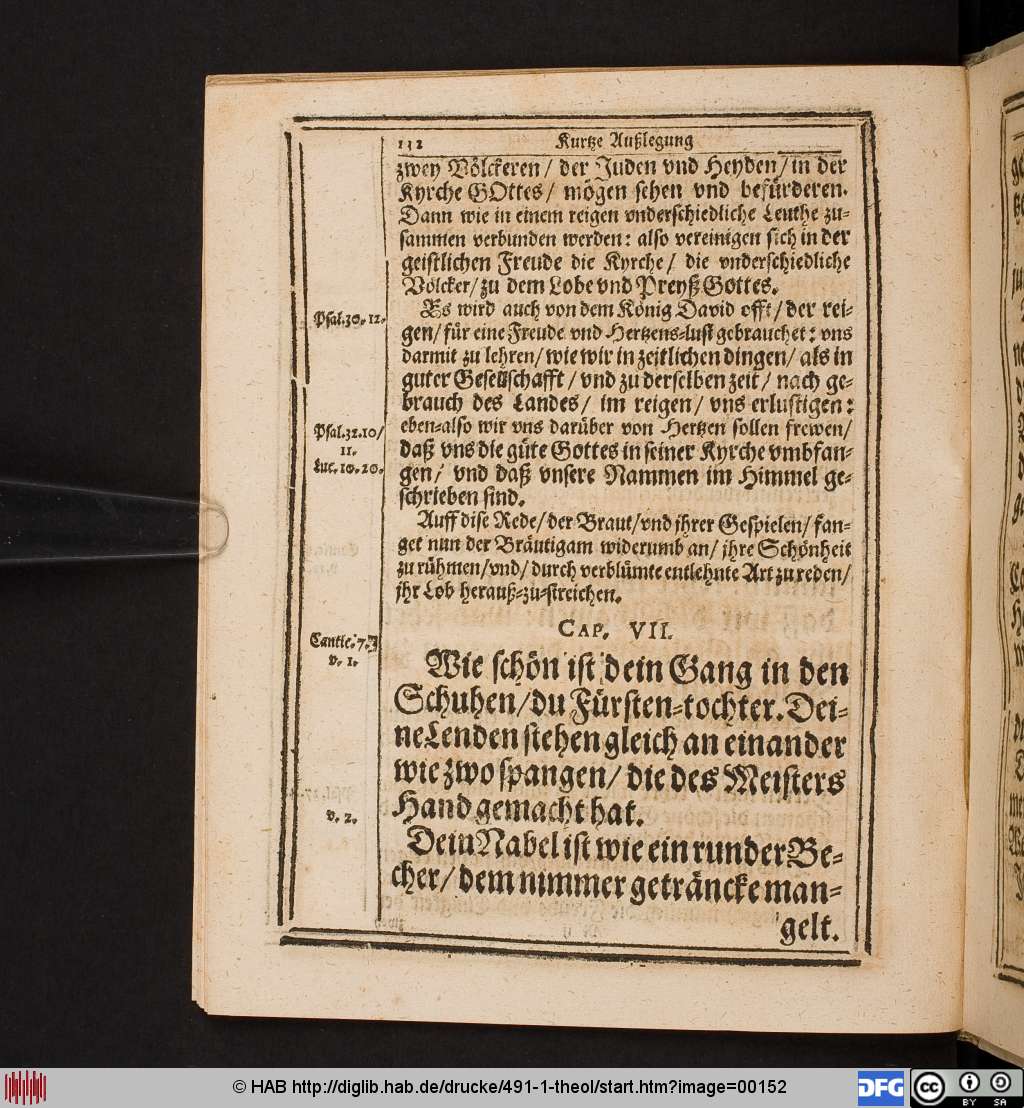 132 Kurtze Außlegung
zwey Völckeren/ der Juden vnd Heyden/ in der
Kyrche GOttes/ mögen sehen vnd befürderen.
Dann wie in einem reigen vnderschiedliche Leuthe zu-
sammen verbunden werden: also vereinigen sich in der
geistlichen Freude die Kyrche/ die vnderschiedliche
Völcker/ zu dem Lobe vnd Preyß Gottes.
Es wird auch von dem König David offt/ der rei-
Psal.30. 12.
gen/ für eine Freude vnd Hertzens-lust gebrauchet: vns
darmit zu lehren/ wie wir in zeitlichen dingen/ als in
guter Gesellschafft/ vnd zu derselben zeit/ nach ge-
brauch des Landes/ im reigen/ vns erlustigen:
Psal.32.10/
11.
Luc. 10. 20.
eben-also wir vns darüber von Hertzen sollen frewen/
daß vns die güte Gottes in seiner Kyrche vmbfan-
gen/ vnd daß vnsere Nammen im Himmel ge-
schrieben sind.
Auff dise Rede/ der Braut/ vnd jhrer Gespielen/ fan-
get nun der Bräutigam widerumb an/ jhre Schönheit
zu rühmen/ vnd/ durch verblümte entlehnte Art zu reden/
jhr Lob herauß-zu-streichen.
CAP. VII.
Cantic. 7.
v. 1.
Wie schön ist dein Gang in den
Schuhen/ du Fürsten-tochter. Dei-
ne Lenden stehen gleich an einander
wie zwo spangen/ die des Meisters
Hand gemacht hat.
v. 2.
Dein Nabel ist wie ein runder Be-
cher/ dem nimmer geträncke man-
gelt.
© HAB http://diglib.hab.de/drucke/491-1-theol/start.htm?image=00152
DFG
cc BY SA